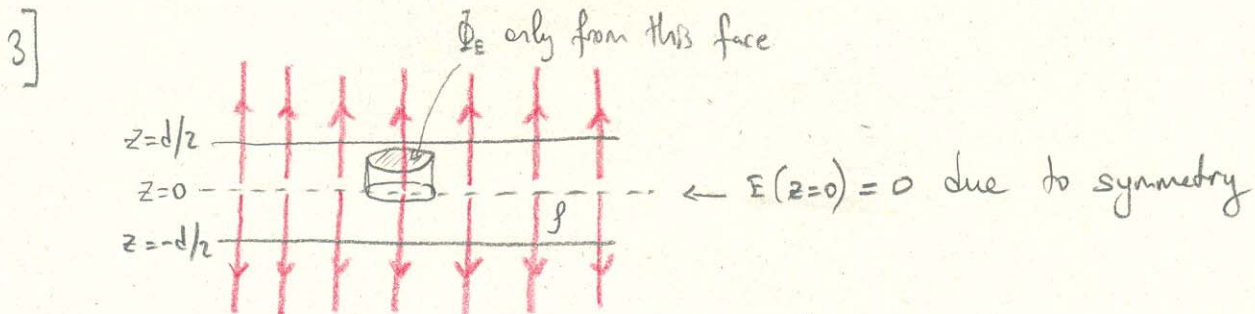 3]
Φ_E only from this face
z=d/2
z=0
← E(z=0) = 0 due to symmetry
ρ
z=-d/2